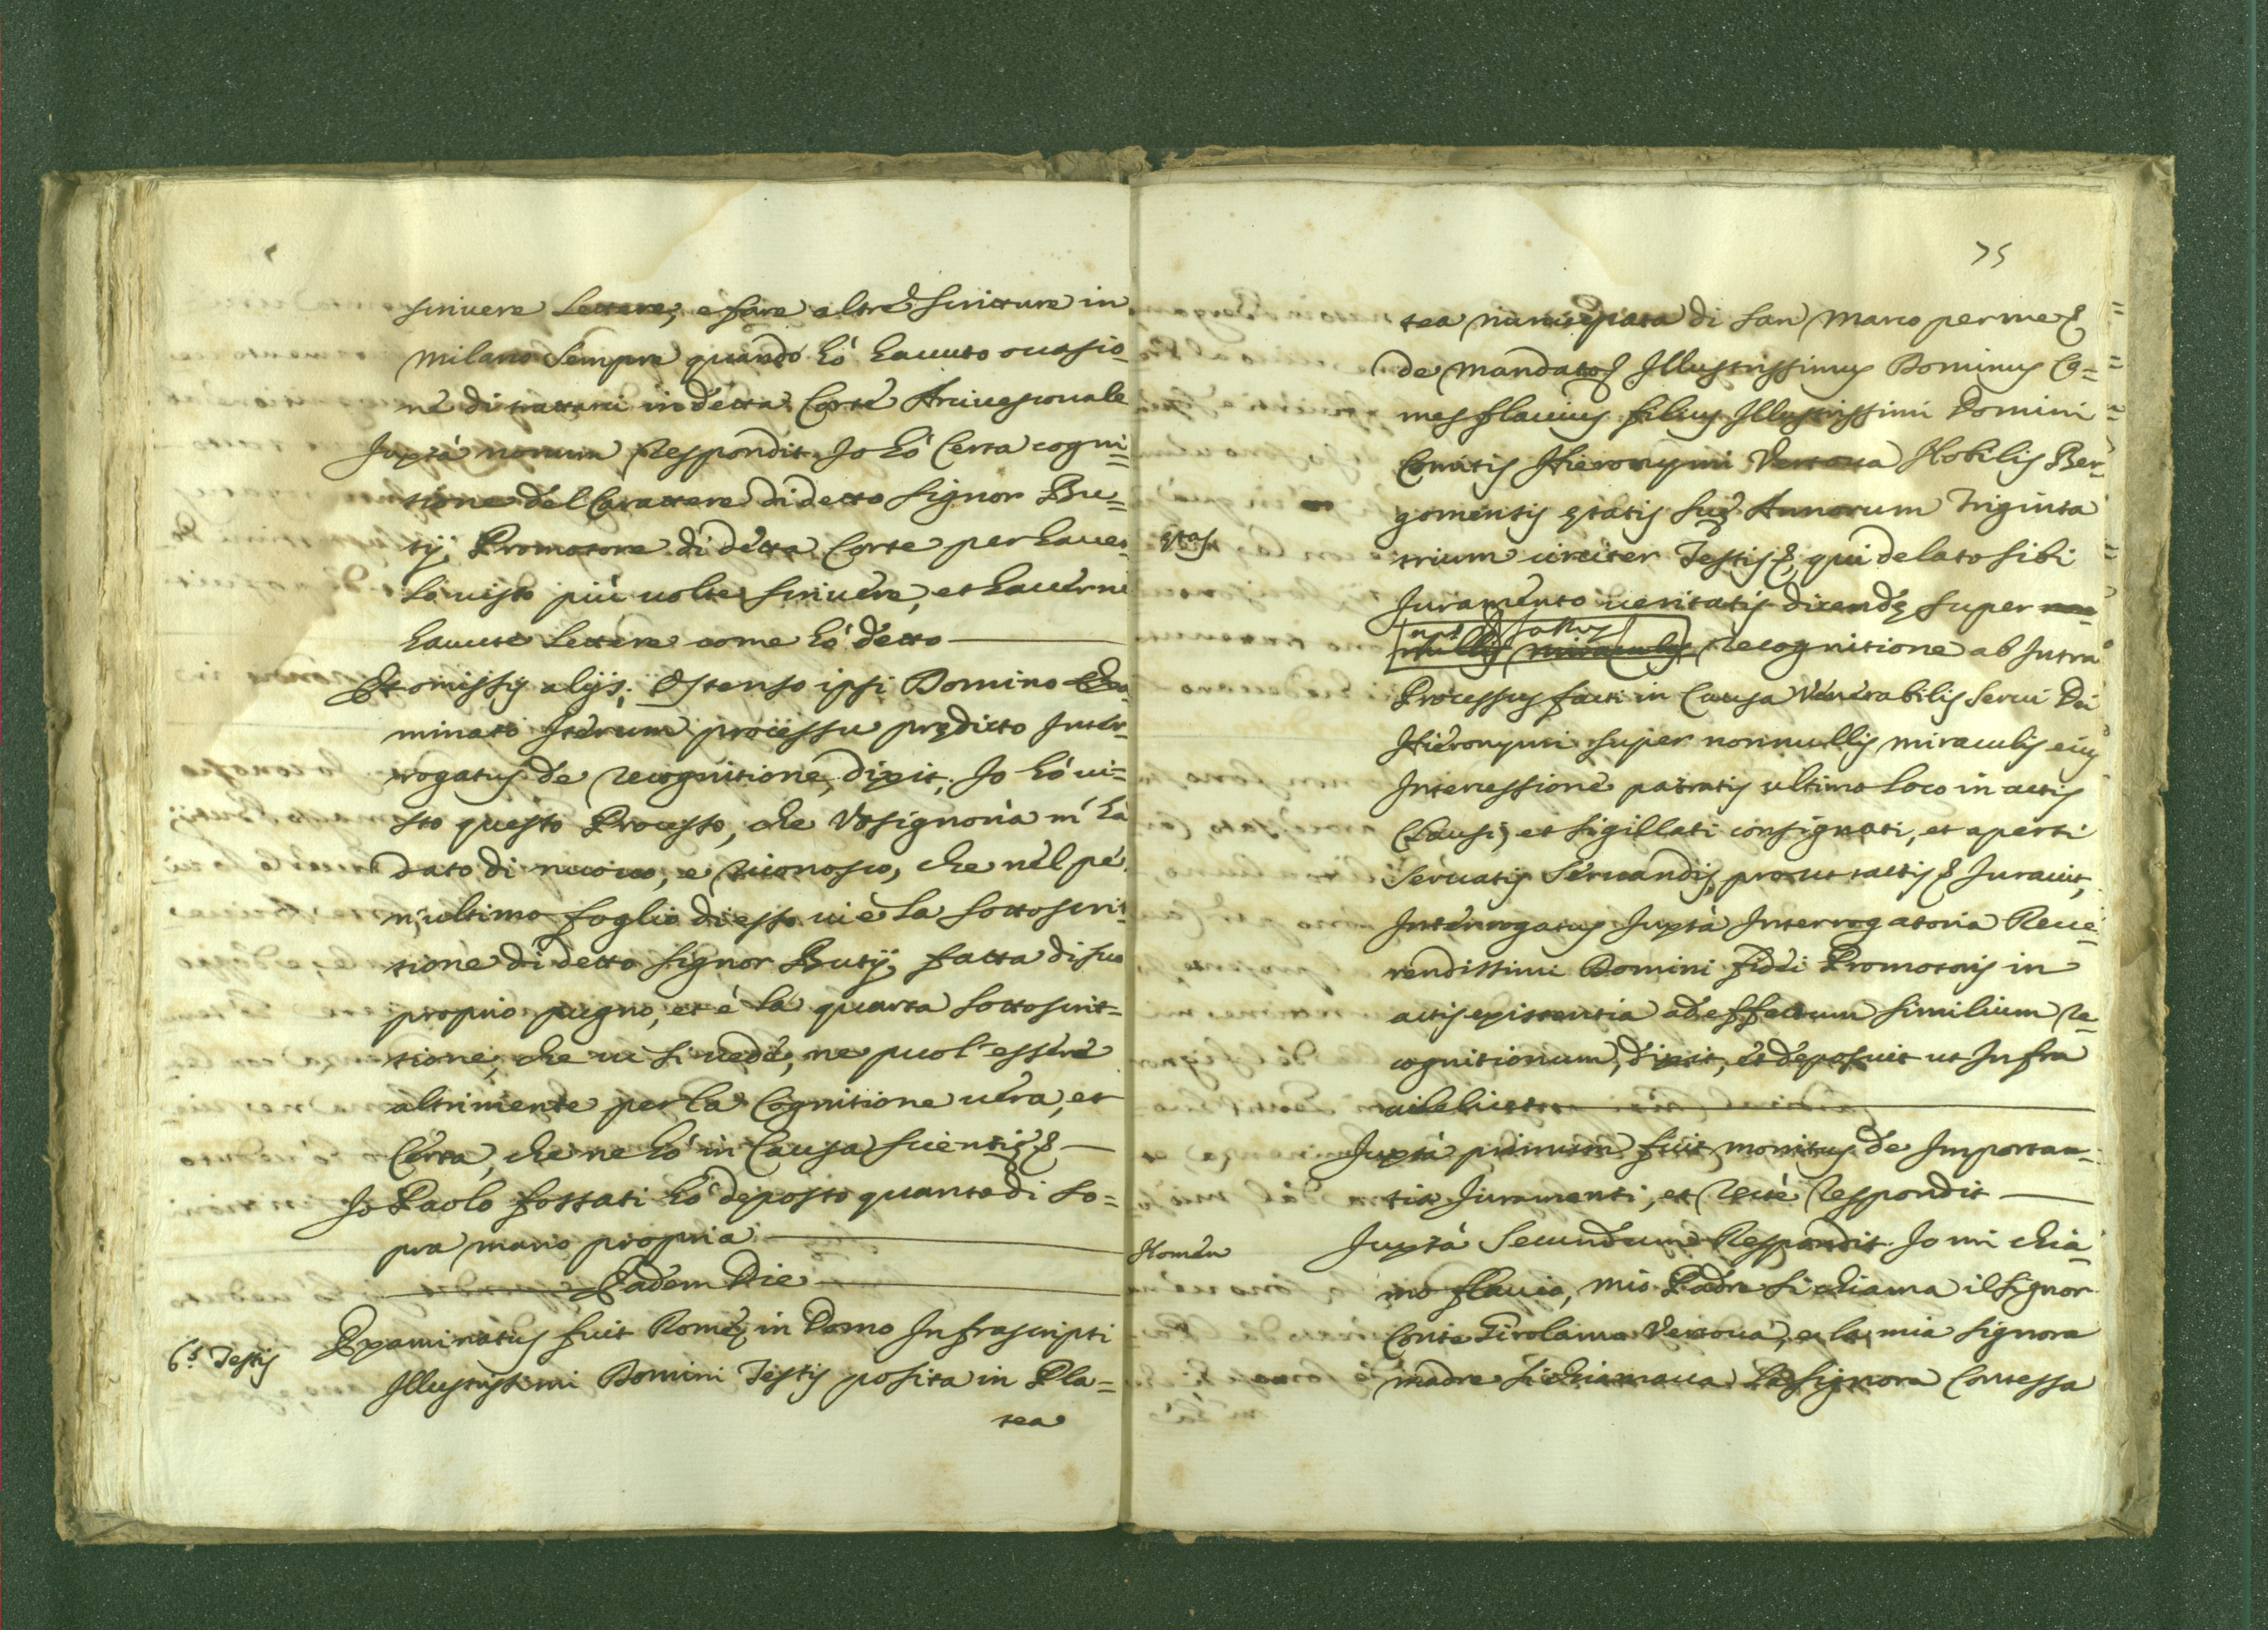 scriuere lettere, e fare altre scritture in
Milano sempre quando hò hauuto occasio-
ne di trattare in detta Corte Arciuescouale
Juxtà nonum Respondit. Jo hò certa cogni=
tione del Carattere di detto Signor Bu=
tij, Promotore di detta Corte per hauer-
lo uisto più uolte scriuere, et hauerne
hauute lettere come hò detto
Et omissis alijs; Ostenso ipsi Domino Exa-
minato Iterum processu prędicto Inter-
rogatus de recognitione, dixit, Jo hò ui=
sto questo Processo, che Vosignoria m'hà
dato di nuouo, e riconosco, che nel pe-
n'ultimo foglio di esso ui è la sottoscrit-
tione di detto Signor Butij, fatta di suo
proprio pugno, et è la quarta sottoscrit=
tione, che ui si uede, ne puol' essere
altrimente per la Cognitione uera, et
Certa, che ne hò in Causa scientię &
Jo Paolo fossati hò deposto quanto di so=
pra mano propria
Eadem Die
6.s Testis
Examinatus fuit Romę in Domo Infrascripti
Illustrissimi Domini Testis posita in Pla=
tea
75
tea nuncupata di san Marco per me &
de mandato & Illustrissimus Dominus Co=
mes flauius filius Illustrissimi Domini
Comitis Hieronymi Vertoua Nobilis Ber-
gomensis ętatis suę Annorum triginta
ętas
trium circiter Testis &, qui delato sibi
Juramento ueritatis dicendę super
recognitione ab Intra
Processus facti in Causa Venerabilis serui Dei
Hieronymi super nonnullis miraculis eius
Intercessione patratis ultimo loco in actis
Clausi, et sigillati consignati, et aperti
seruatis seruandis, prout tactis & Jurauit,
Interrogatus Juxtà Interrogatoria Reue-
rendissimi Domini fidei Promotoris in
actis existentia ad effectum similium re-
cognitionum, dixit, et deposuit ut Infra
uidelicet
Juxtà primum fuit monitus de Importan-
tia Juramenti, et rectè respondit
Nomen
Juxtà Secundum Respondit. Jo mi chia-
mo flauio, mio Padre si chiama il signor
Conte Girolamo Vertoua, e la mia signora
madre si chiamaua la signora Contessa